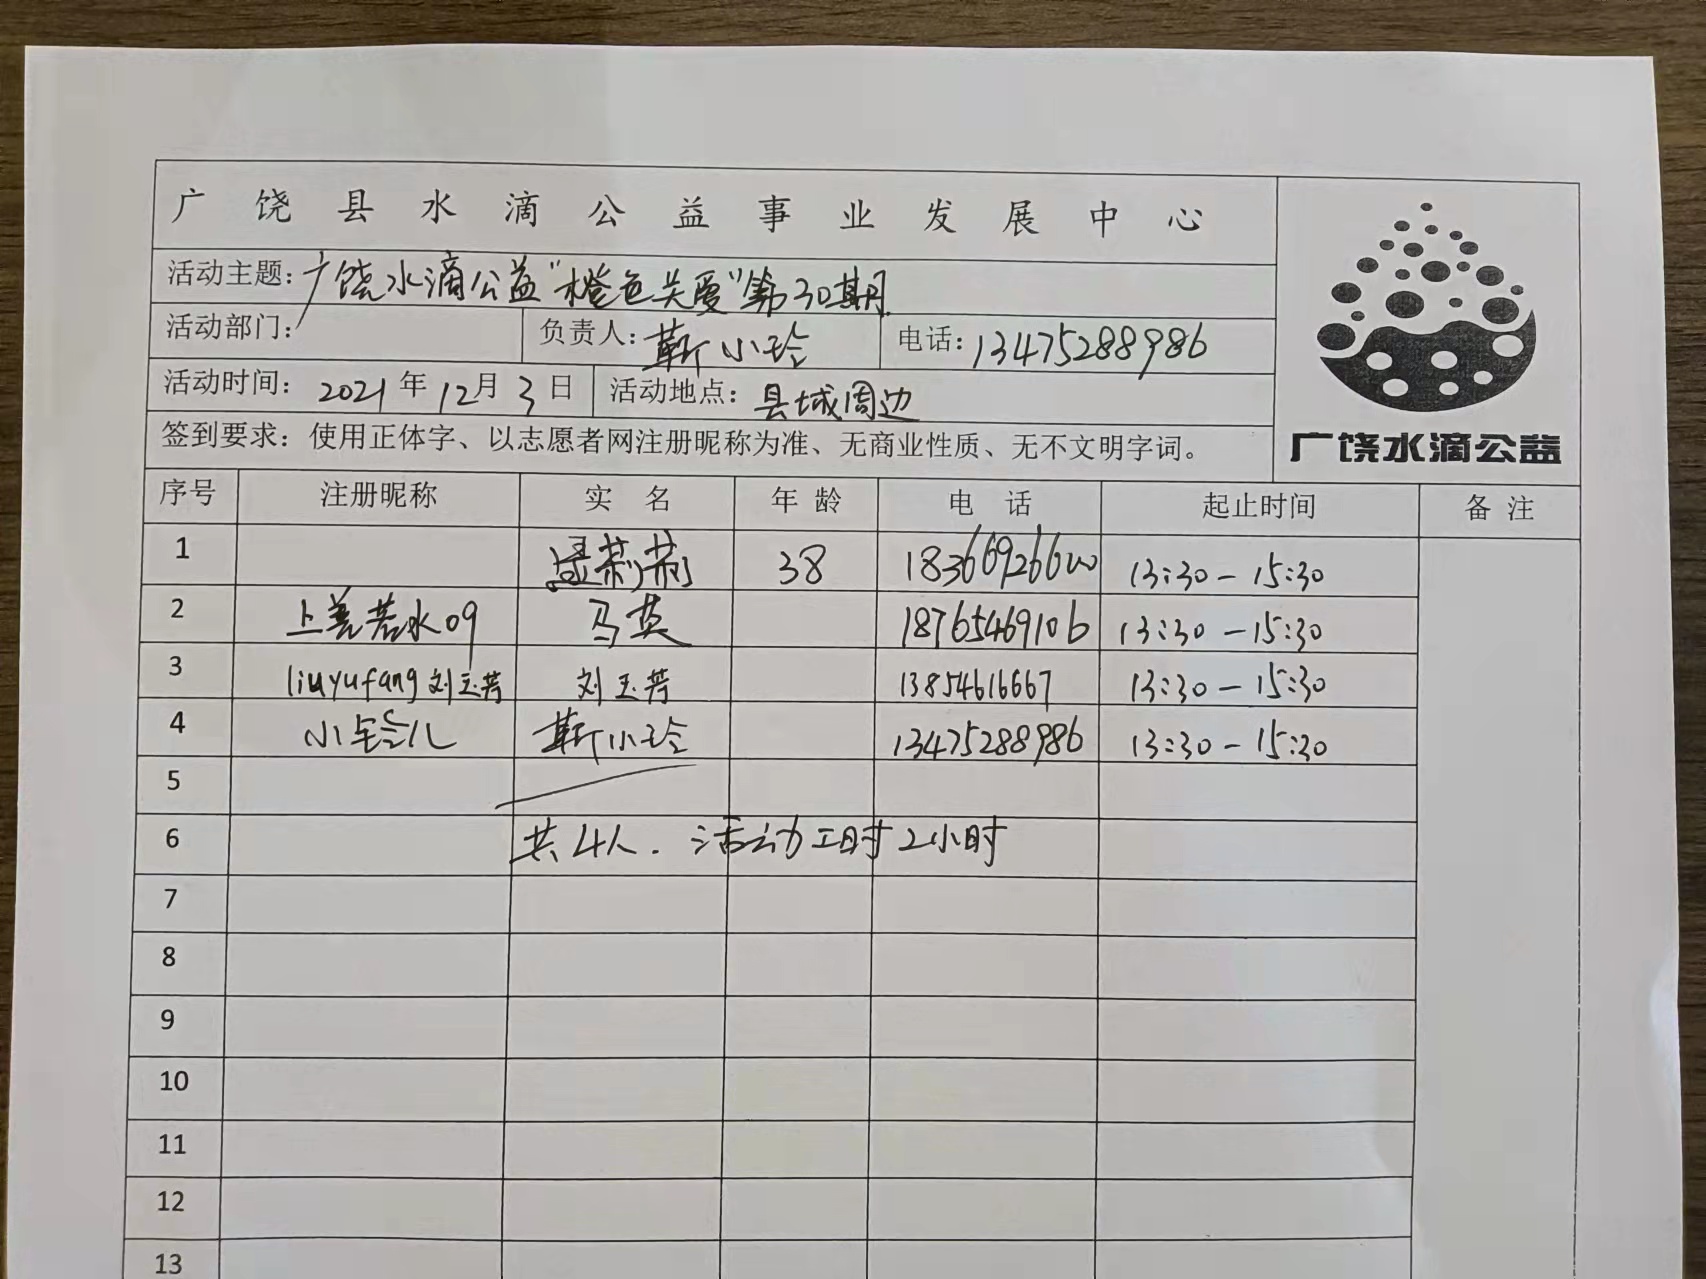 广饶县水滴公益事业发展中心
活动主题：广饶水滴公益“橙色关爱”第30期
活动部门： 负责人：靳小玲 电话：13475288986
活动时间：2021年12月3日 活动地点：县域周边
签到要求：使用正体字、以志愿者网注册昵称为准、无商业性质、无不文明字词。
广饶水滴公益
序号 注册昵称 实名 年龄 电话 起止时间 备注
1 莉莉 38 13:30-15:30
2 上善若水09 马英 18765469106 13:30-15:30
3 liuyufang刘玉芳 刘玉芳 13854616667 13:30-15:30
4 小铃儿 靳小玲 13475288986 13:30-15:30
5
6 共4人.活动工时2小时
7
8
9
10
11
12
13